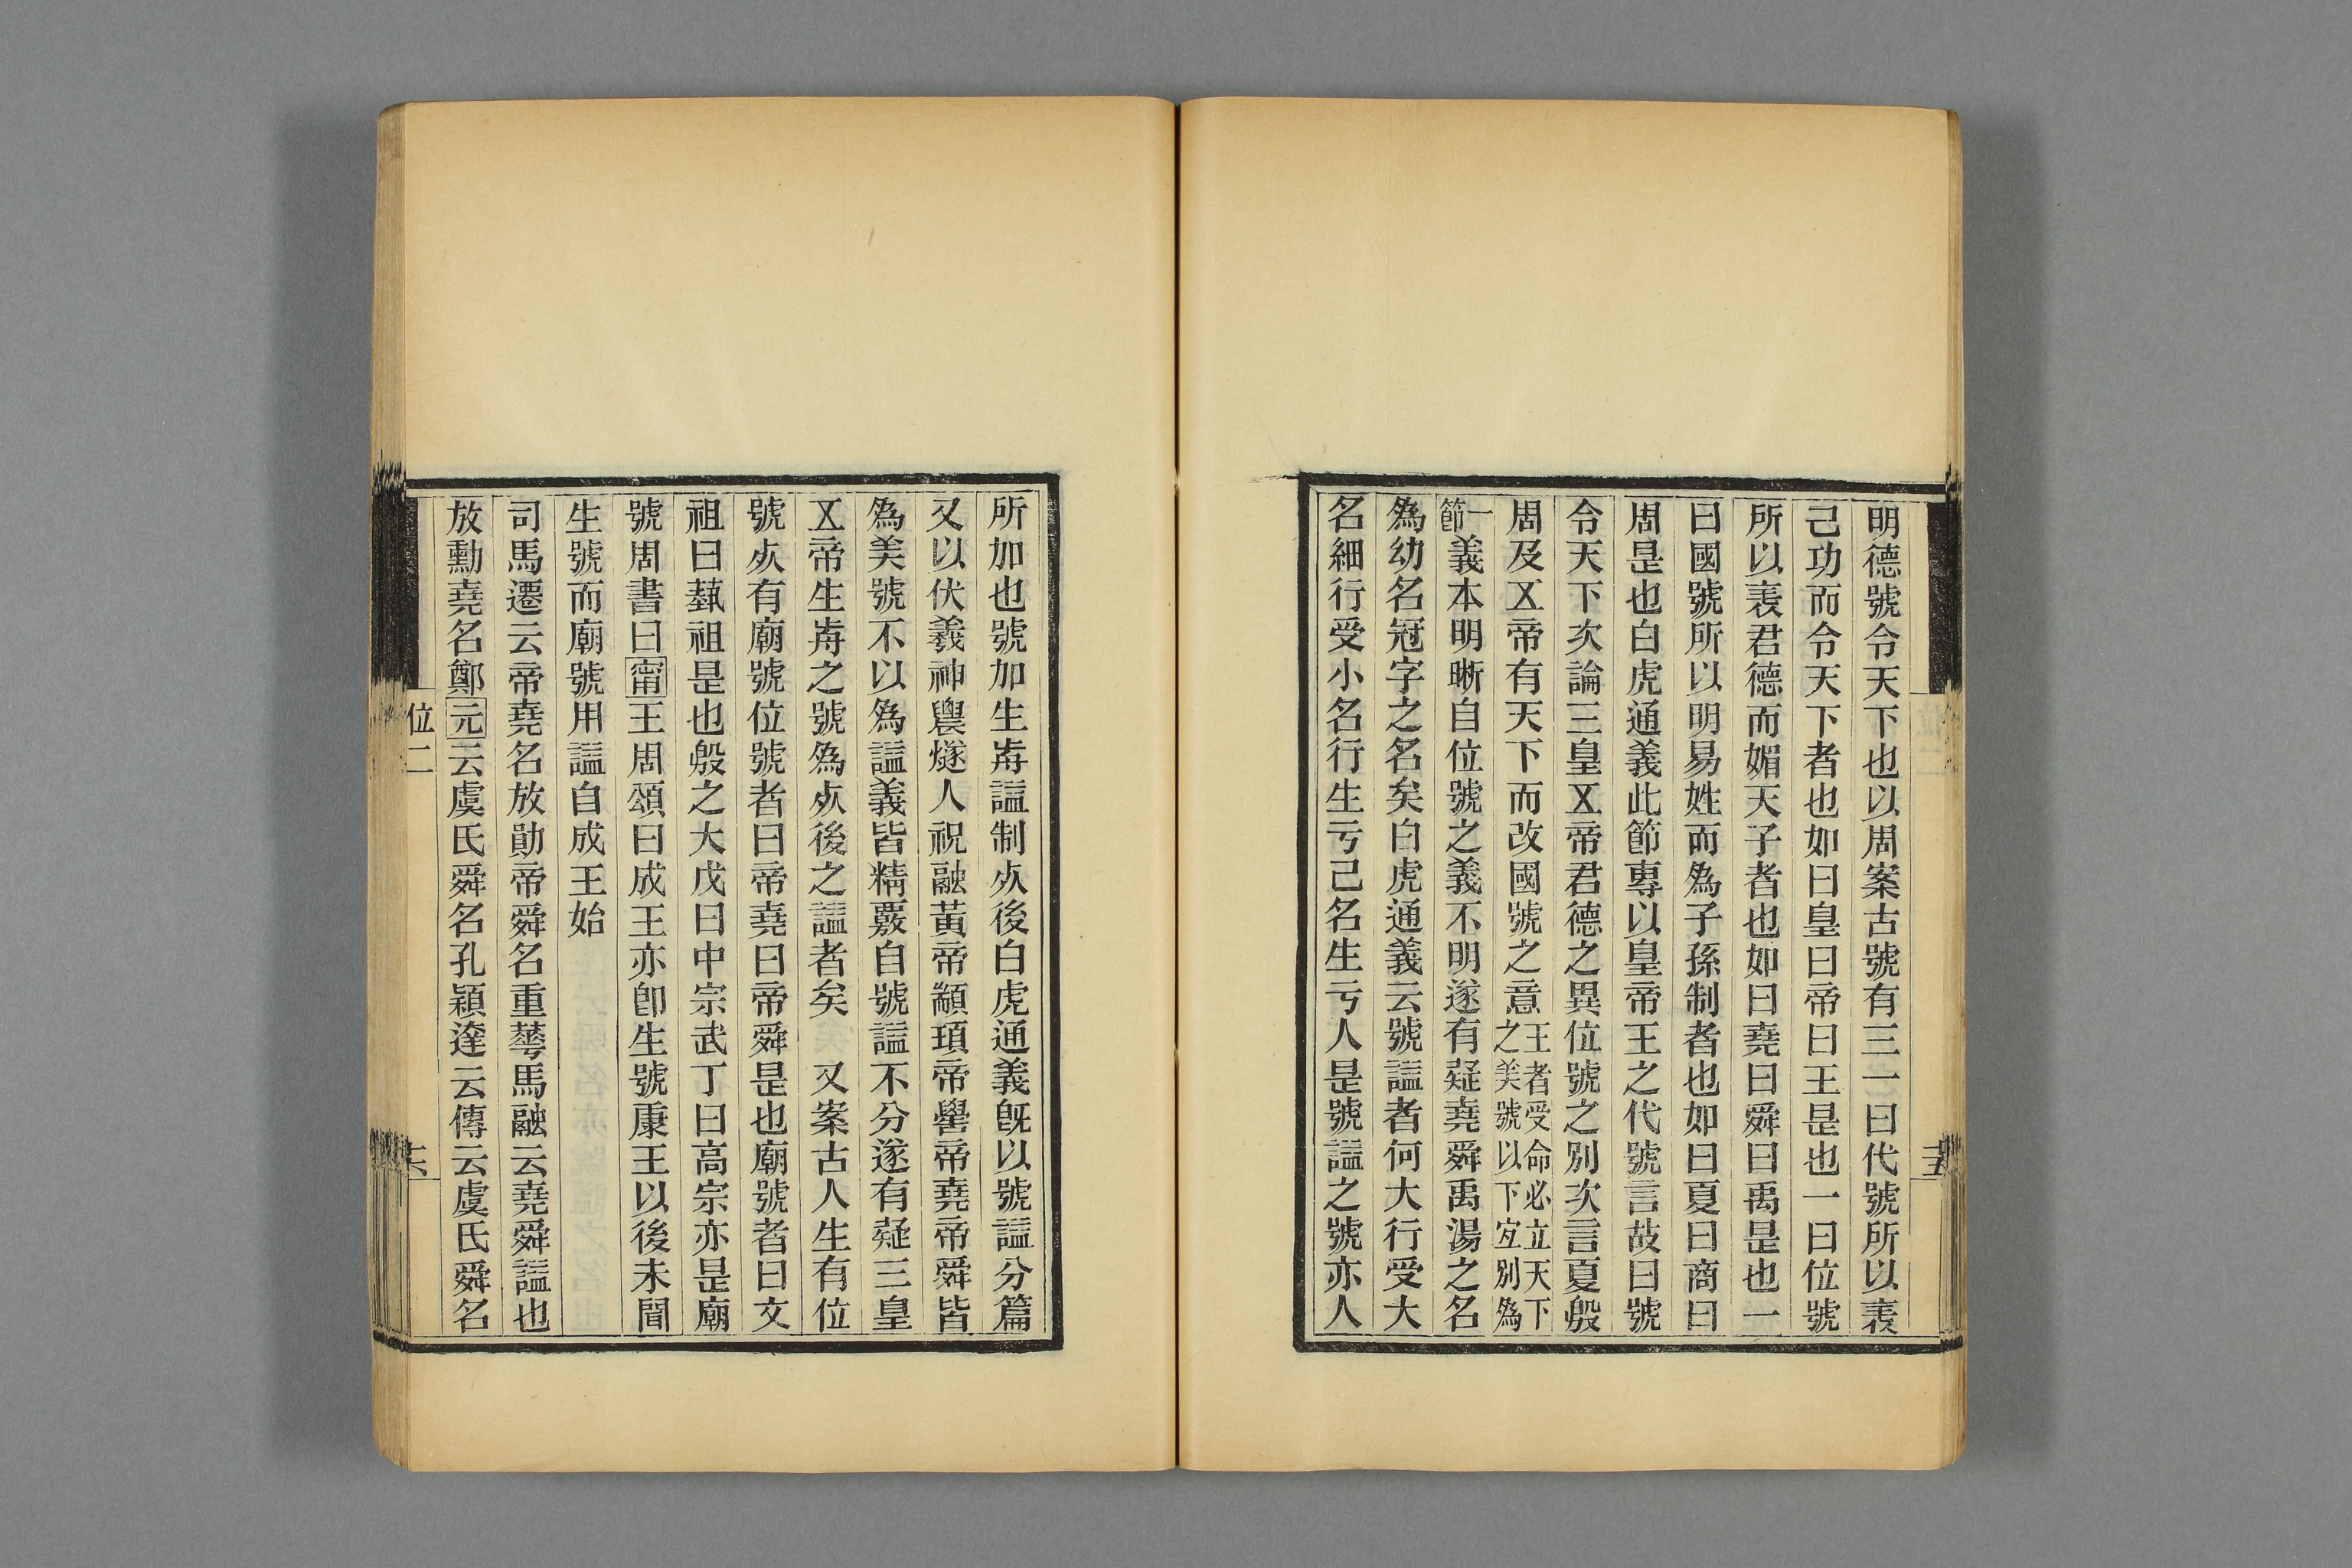 明德號令天下也以周案古號有三一曰代號所以表
己功而令天下者也如曰皇曰帝曰王是也一曰位號
所以表君德而媚天子者也如曰堯曰舜曰禹是也一
曰國號所以明易姓而為子孫制者也如曰夏曰商曰
周是也白虎通義此節專以皇帝王之代號言故曰號
令天下次論三皇五帝君德之異位號之別次言夏殷
周及五帝有天下而改國號之意王者受命必立天下之美號以下宜別為
一節義本明晣自位號之義不明遂有疑堯舜禹湯之名
為幼名冠字之名矣白虎通義云號謚者何大行受大
名細行受小名行生亏己名生亏人是號謚之號亦人
十五
所加也號加生歬謚制𣦸後白虎通義旣以號謚分篇
又以伏羲神農燧人祝融黃帝顓頊帝嚳帝堯帝舜皆
為美號不以為謚義皆精覈自號謚不分遂有疑三皇
五帝生歬之號為𣦸後之謚者矣 又案古人生有位
號𣦸有廟號位號者曰帝堯曰帝舜是也廟號者曰文
祖曰蓺祖是也殷之大戊曰中宗武丁曰高宗亦是廟
號周書曰甯王周頌曰成王亦卽生號康王以後未聞
生號而廟號用謚自成王始
司馬遷云帝堯名放勛帝舜名重華馬融云堯舜謚也
放勳堯名鄭元云虞氏舜名孔穎達云傳云虞氏舜名
位二
十六